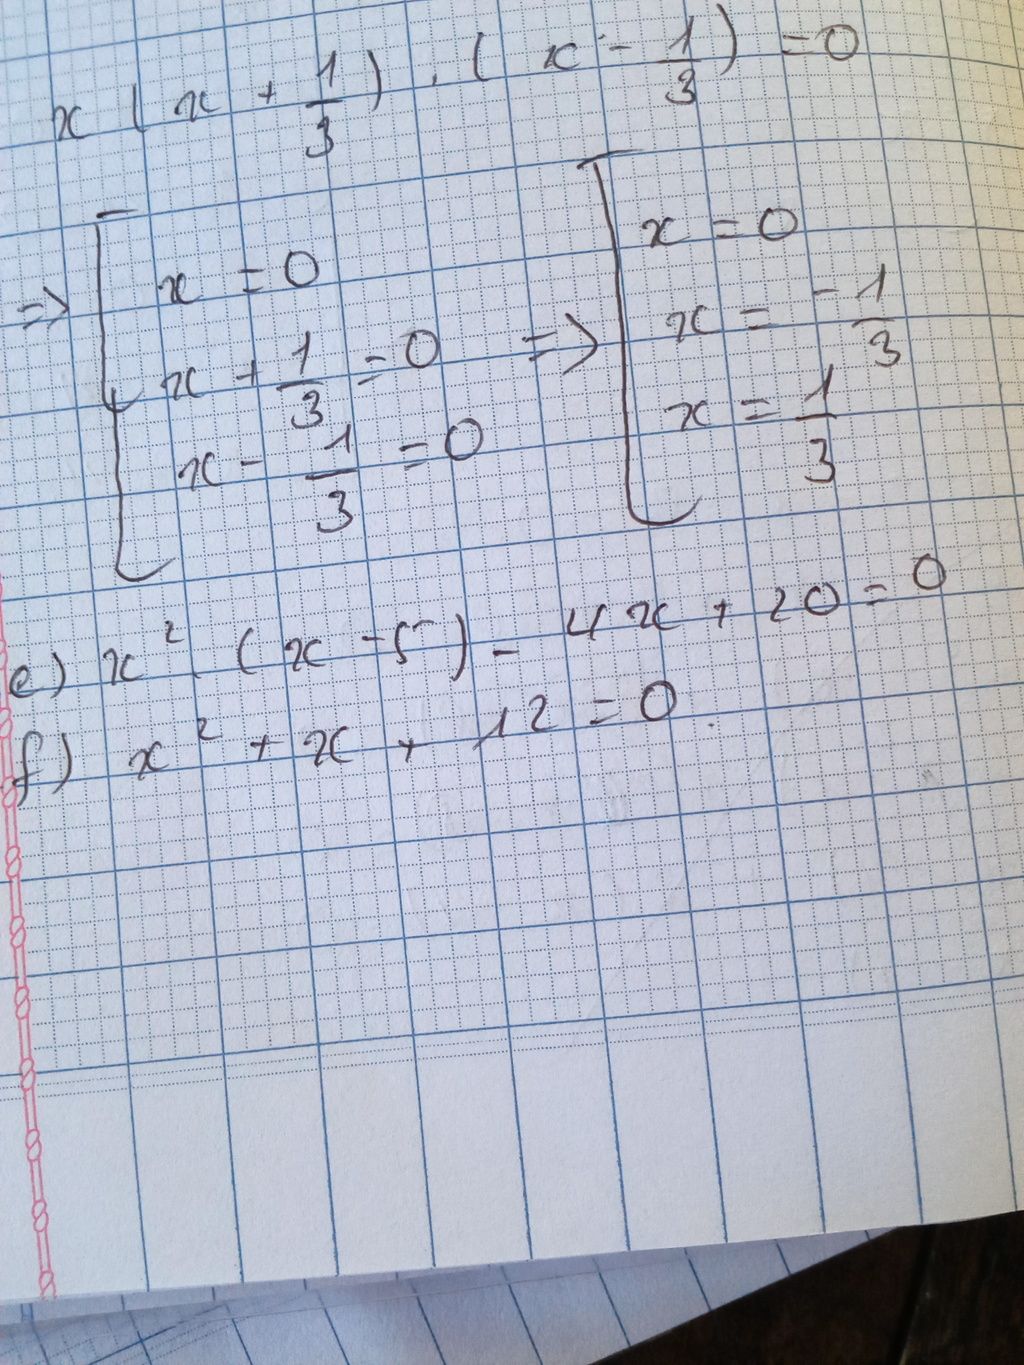 x ( x + 1/3 ) . ( x - 1/3 ) = 0
=> [ x = 0 => [ x = 0
x + 1/3 = 0 x = -1/3
x - 1/3 = 0 x = 1/3
e) x² . ( x - 5 ) - 4x + 20 = 0
f) x² + x + 12 = 0 .